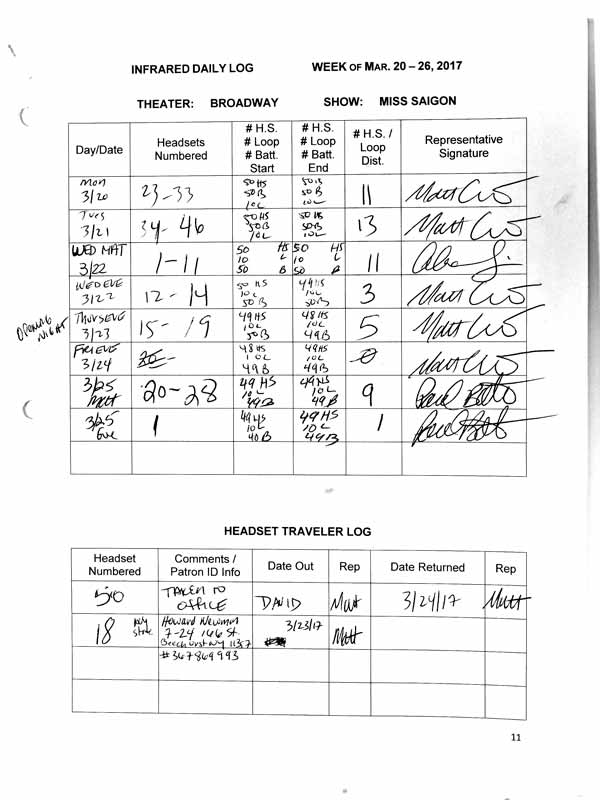 INFRARED DAILY LOG WEEK OF MAR. 20 – 26, 2017
THEATER: BROADWAY SHOW: MISS SAIGON
Day/Date
Headsets
Numbered
# H.S.
# Loop
# Batt.
Start
# H.S.
# Loop
# Batt.
End
# H.S. /
Loop
Dist.
Representative
Signature
Mon
3/20
23-33
50 HS
50 B
10 L
50 B
50 HS
10 L
11
Matt
Tues
3/21
34-46
50 HS
50 B
10 L
50 HS
50 B
10 L
13
Matt
WED MAT
3/22
1-11
50 HS
10 L
50 B
50 HS
10 L
50 B
11
WED EVE
3/22
12-14
50 HS
10 L
50 B
49 HS
10 L
50 B
3
Matt
OPENING
NIGHT
THURS EVE
3/23
15-19
49 HS
10 L
50 B
48 HS
10 L
49 B
5
Matt
FRI EVE
3/24
48 HS
10 L
49 B
49 HS
10 L
49 B
0
Matt
3/25
Mat
20-28
49 HS
10 L
49 B
49 HS
10 L
49 B
9
3/25
Eve
1
49 HS
10 L
40 B
49 HS
10 L
49 B
1
HEADSET TRAVELER LOG
Headset
Numbered
Comments /
Patron ID Info
Date Out
Rep
Date Returned
Rep
50
TAKEN TO
OFFICE
DAVID
Matt
3/24/17
Matt
18
Howard Newman
7-24 166 St.
Beechurst NY 11357
#367869993
3/23/17
Matt
11